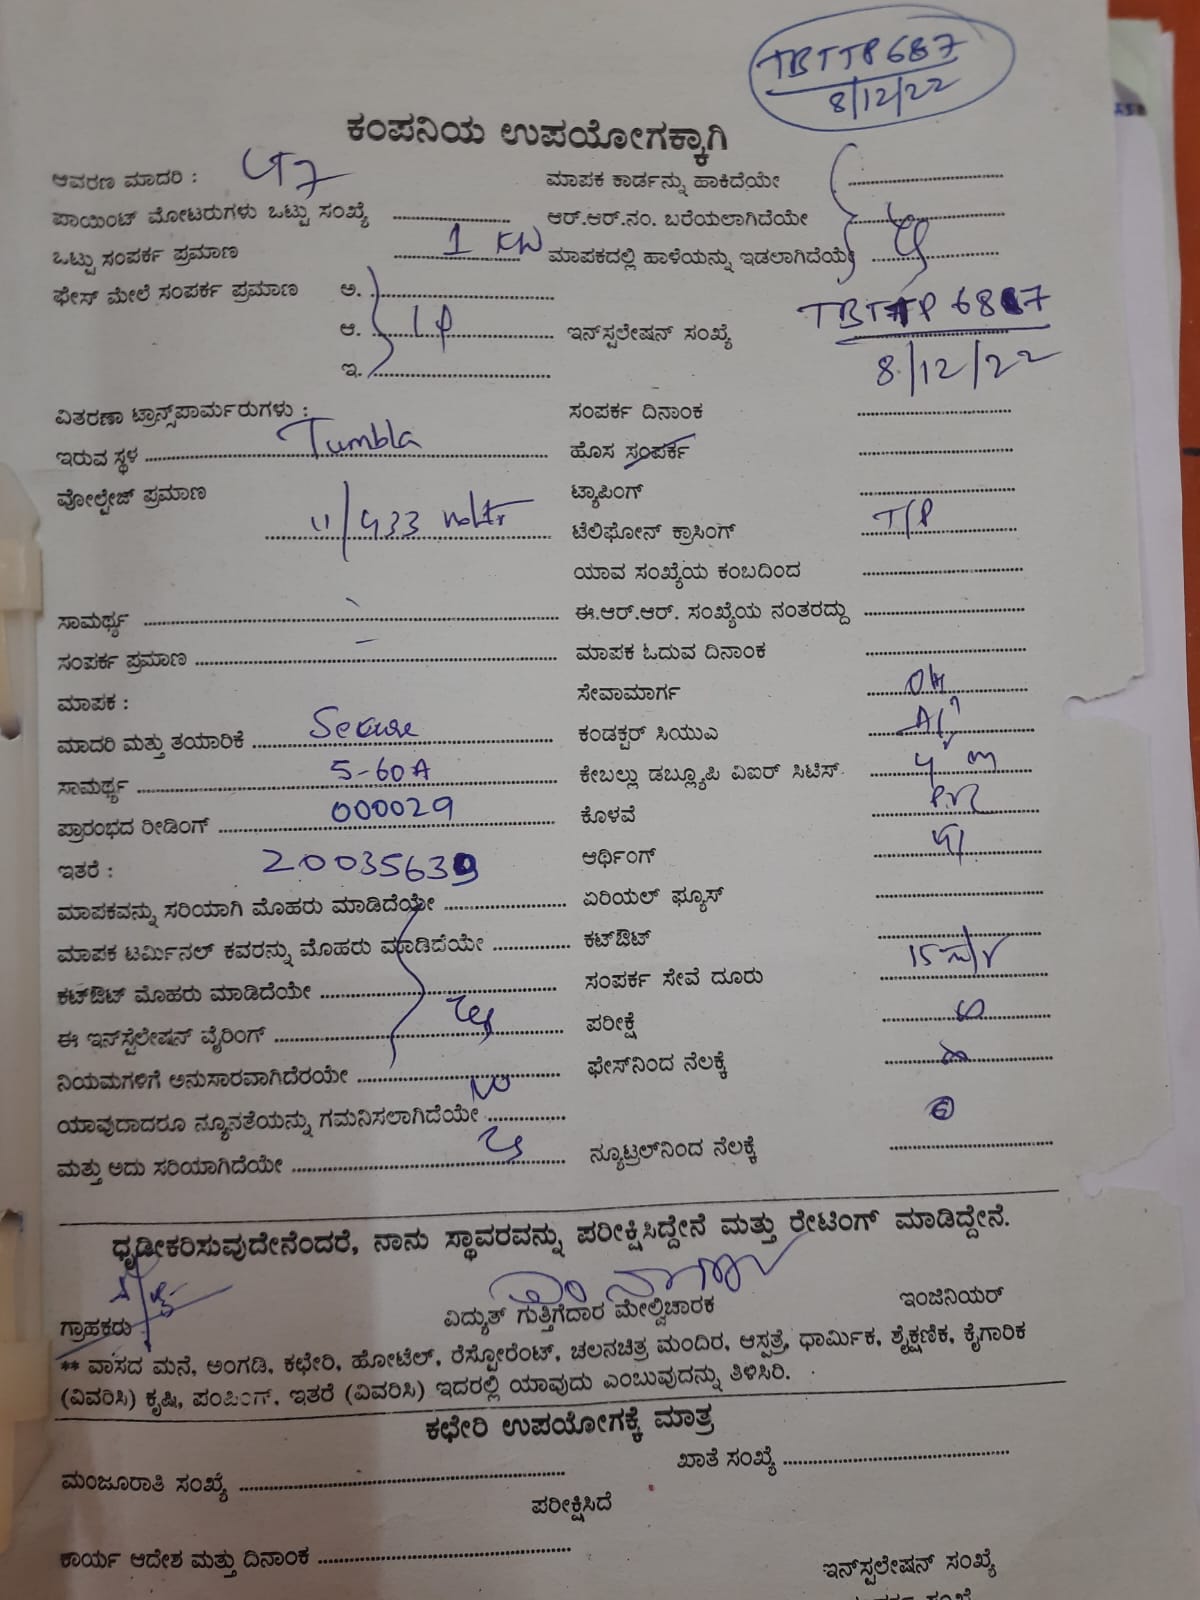 TBTTP687
8/12/22
ಕಂಪನಿಯ ಉಪಯೋಗಕ್ಕಾಗಿ
ಆವರಣ ಮಾದರಿ : ಮಾಪಕ ಕಾರ್ಡನ್ನು ಹಾಕಿದೆಯೇ
ಪಾಯಿಂಟ್ ಮೋಟರುಗಳು ಒಟ್ಟು ಸಂಖ್ಯೆ ಆರ್.ಆರ್.ನಂ. ಬರೆಯಲಾಗಿದೆಯೇ
ಒಟ್ಟು ಸಂಪರ್ಕ ಪ್ರಮಾಣ 1 KW ಮಾಪಕದಲ್ಲಿ ಹಾಳೆಯನ್ನು ಇಡಲಾಗಿದೆಯೇ
ಫೇಸ್ ಮೇಲೆ ಸಂಪರ್ಕ ಪ್ರಮಾಣ ಅ.
ಆ. ಇನ್‌ಸ್ಪಲೇಷನ್ ಸಂಖ್ಯೆ TBTTP 687
ಇ. 8/12/22
ವಿತರಣಾ ಟ್ರಾನ್ಸ್‌ಪಾರ್ಮರುಗಳು : ಸಂಪರ್ಕ ದಿನಾಂಕ
ಇರುವ ಸ್ಥಳ Tumbla ಹೊಸ ಸಂಪರ್ಕ
ವೋಲ್ಟೇಜ್ ಪ್ರಮಾಣ ಟ್ಯಾಪಿಂಗ್
11/433 volts ಟೆಲಿಫೋನ್ ಕ್ರಾಸಿಂಗ್ T/P
ಯಾವ ಸಂಖ್ಯೆಯ ಕಂಬದಿಂದ
ಸಾಮರ್ಥ್ಯ ಈ.ಆರ್.ಆರ್. ಸಂಖ್ಯೆಯ ನಂತರದ್ದು
ಸಂಪರ್ಕ ಪ್ರಮಾಣ ಮಾಪಕ ಓದುವ ದಿನಾಂಕ
ಮಾಪಕ : ಸೇವಾಮಾರ್ಗ OH
ಮಾದರಿ ಮತ್ತು ತಯಾರಿಕೆ Secure ಕಂಡಕ್ಟರ್ ಸಿಯುಎ
ಸಾಮರ್ಥ್ಯ 5-60A ಕೇಬಲ್ಲು ಡಬ್ಲ್ಯೂಪಿ ವಿಐರ್ ಸಿಟಿಸ್
ಪ್ರಾರಂಭದ ರೀಡಿಂಗ್ 000029 ಕೊಳವೆ
ಇತರೆ : 20035639 ಆರ್ಥಿಂಗ್
ಮಾಪಕವನ್ನು ಸರಿಯಾಗಿ ಮೊಹರು ಮಾಡಿದೆಯೇ ಏರಿಯಲ್ ಫ್ಯೂಸ್
ಮಾಪಕ ಟರ್ಮಿನಲ್ ಕವರನ್ನು ಮೊಹರು ಮಾಡಿದೆಯೇ ಕಟ್‌ಔಟ್
ಕಟ್‌ಔಟ್ ಮೊಹರು ಮಾಡಿದೆಯೇ ಸಂಪರ್ಕ ಸೇವೆ ದೂರು
ಈ ಇನ್‌ಸ್ಪೆಲೇಷನ್ ವೈರಿಂಗ್ ಪರೀಕ್ಷೆ
ನಿಯಮಗಳಿಗೆ ಅನುಸಾರವಾಗಿದೆರಯೇ ಫೇಸ್‌ನಿಂದ ನೆಲಕ್ಕೆ
ಯಾವುದಾದರೂ ನ್ಯೂನತೆಯನ್ನು ಗಮನಿಸಲಾಗಿದೆಯೇ NO
ಮತ್ತು ಅದು ಸರಿಯಾಗಿದೆಯೇ ನ್ಯೂಟ್ರಲ್‌ನಿಂದ ನೆಲಕ್ಕೆ
ಧೃಡೀಕರಿಸುವುದೇನೆಂದರೆ, ನಾನು ಸ್ಥಾವರವನ್ನು ಪರೀಕ್ಷಿಸಿದ್ದೇನೆ ಮತ್ತು ರೇಟಿಂಗ್ ಮಾಡಿದ್ದೇನೆ.
ಗ್ರಾಹಕರು ವಿದ್ಯುತ್ ಗುತ್ತಿಗೆದಾರ ಮೇಲ್ವಿಚಾರಕ ಇಂಜಿನಿಯರ್
** ವಾಸದ ಮನೆ, ಅಂಗಡಿ, ಕಛೇರಿ, ಹೋಟೆಲ್, ರೆಸ್ಟೋರೆಂಟ್, ಚಲನಚಿತ್ರ ಮಂದಿರ, ಆಸ್ಪತ್ರೆ, ಧಾರ್ಮಿಕ, ಶೈಕ್ಷಣಿಕ, ಕೈಗಾರಿಕ
(ವಿವರಿಸಿ) ಕೃಷಿ, ಪಂಪಿಂಗ್, ಇತರೆ (ವಿವರಿಸಿ) ಇದರಲ್ಲಿ ಯಾವುದು ಎಂಬುವುದನ್ನು ತಿಳಿಸಿರಿ.
ಕಛೇರಿ ಉಪಯೋಗಕ್ಕೆ ಮಾತ್ರ
ಮಂಜೂರಾತಿ ಸಂಖ್ಯೆ ಖಾತೆ ಸಂಖ್ಯೆ
ಪರೀಕ್ಷಿಸಿದೆ
ಕಾರ್ಯ ಆದೇಶ ಮತ್ತು ದಿನಾಂಕ ಇನ್‌ಸ್ಪಲೇಷನ್ ಸಂಖ್ಯೆ